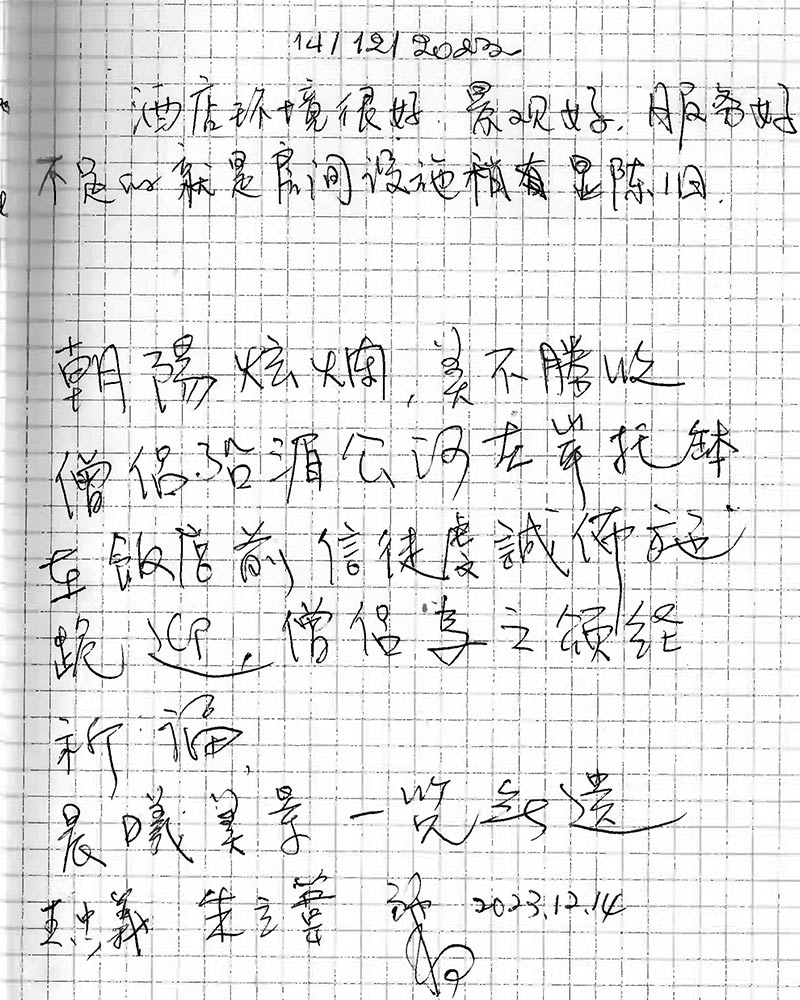 14/12/2023
酒店环境很好. 景观好. 服务好
不足的就是房间设施稍有显陈旧.
朝陽炫爛,美不勝收
僧侶沿湄公河左岸托缽
在飯店前,信徒虔誠佈施
跪迎,僧侶為之頌経
祈福,
晨曦美景一览無遺
王忠義 朱立 2023.12.14